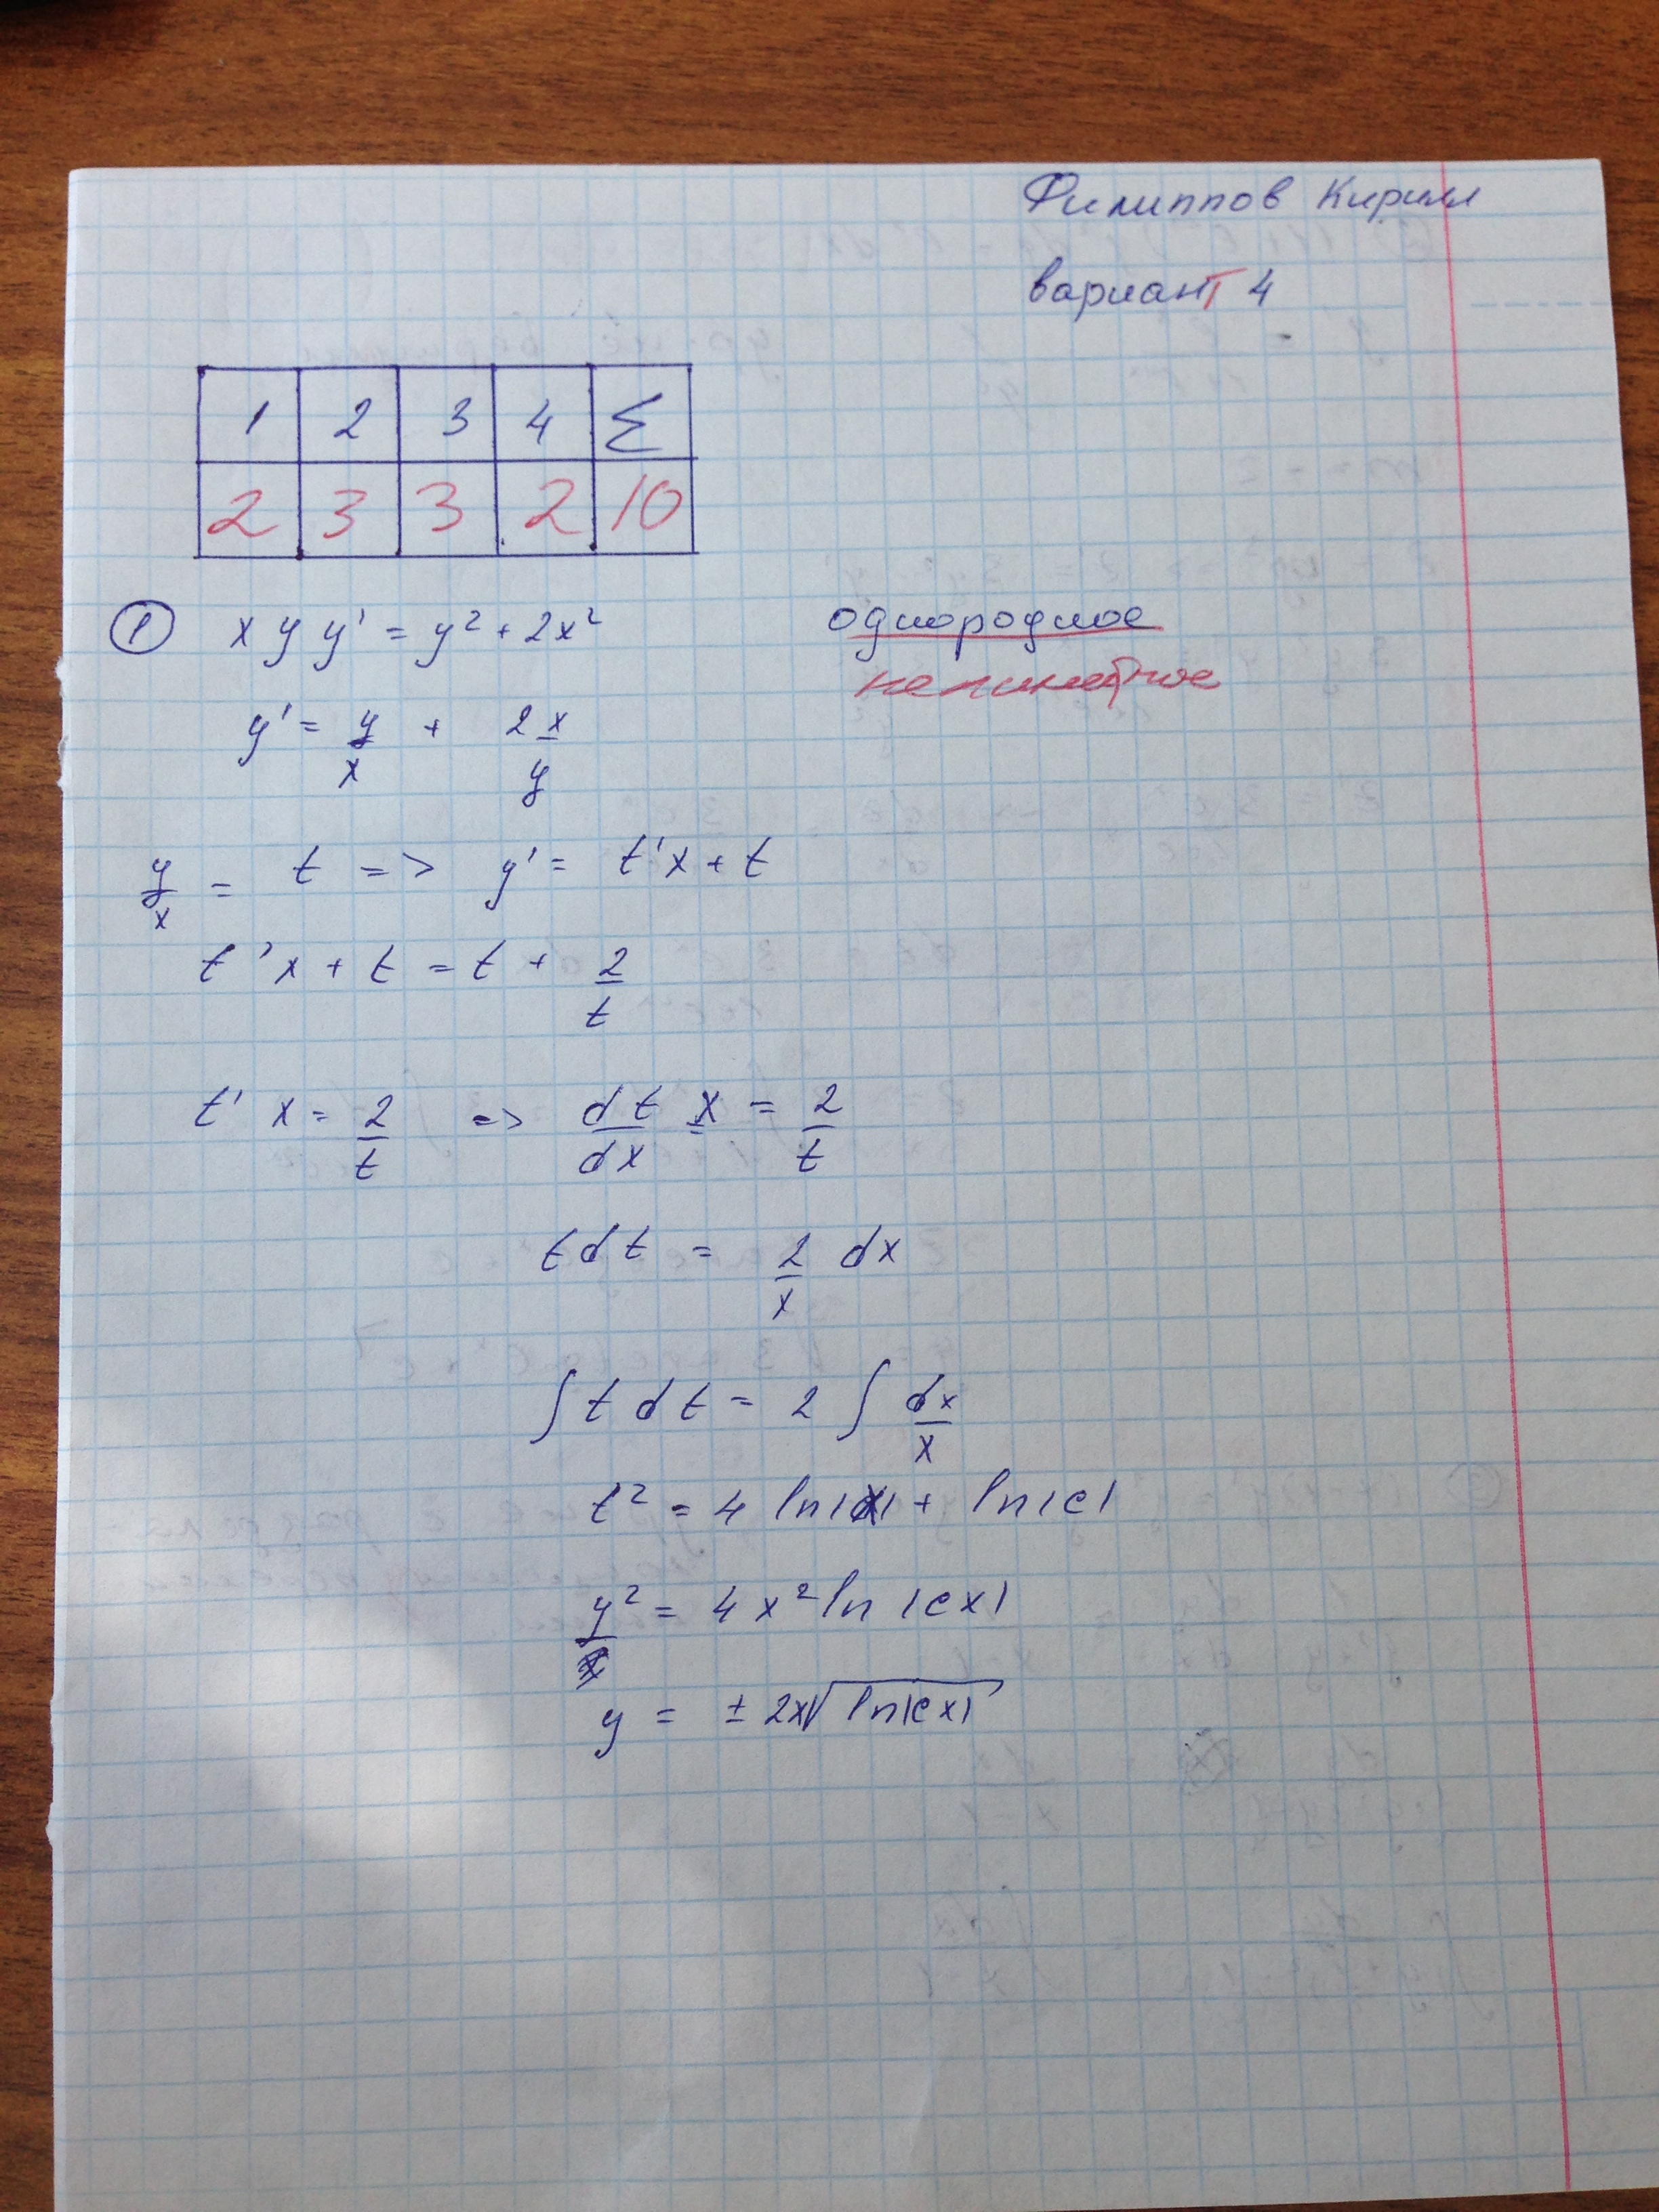 Филиппов Кирилл
вариант 4
1 2 3 4 Σ
2 3 3 2 10
① x y y' = y² + 2x² однородное
нелинейное
y' = y/x + 2x/y
y/x = t => y' = t'x + t
t'x + t = t + 2/t
t' x = 2/t => dt/dx x = 2/t
t dt = 2/x dx
∫ t dt = 2 ∫ dx/x
t² = 4 ln|x| + ln|c|
y² = 4x² ln |cx|
y = ± 2x√ln|cx|